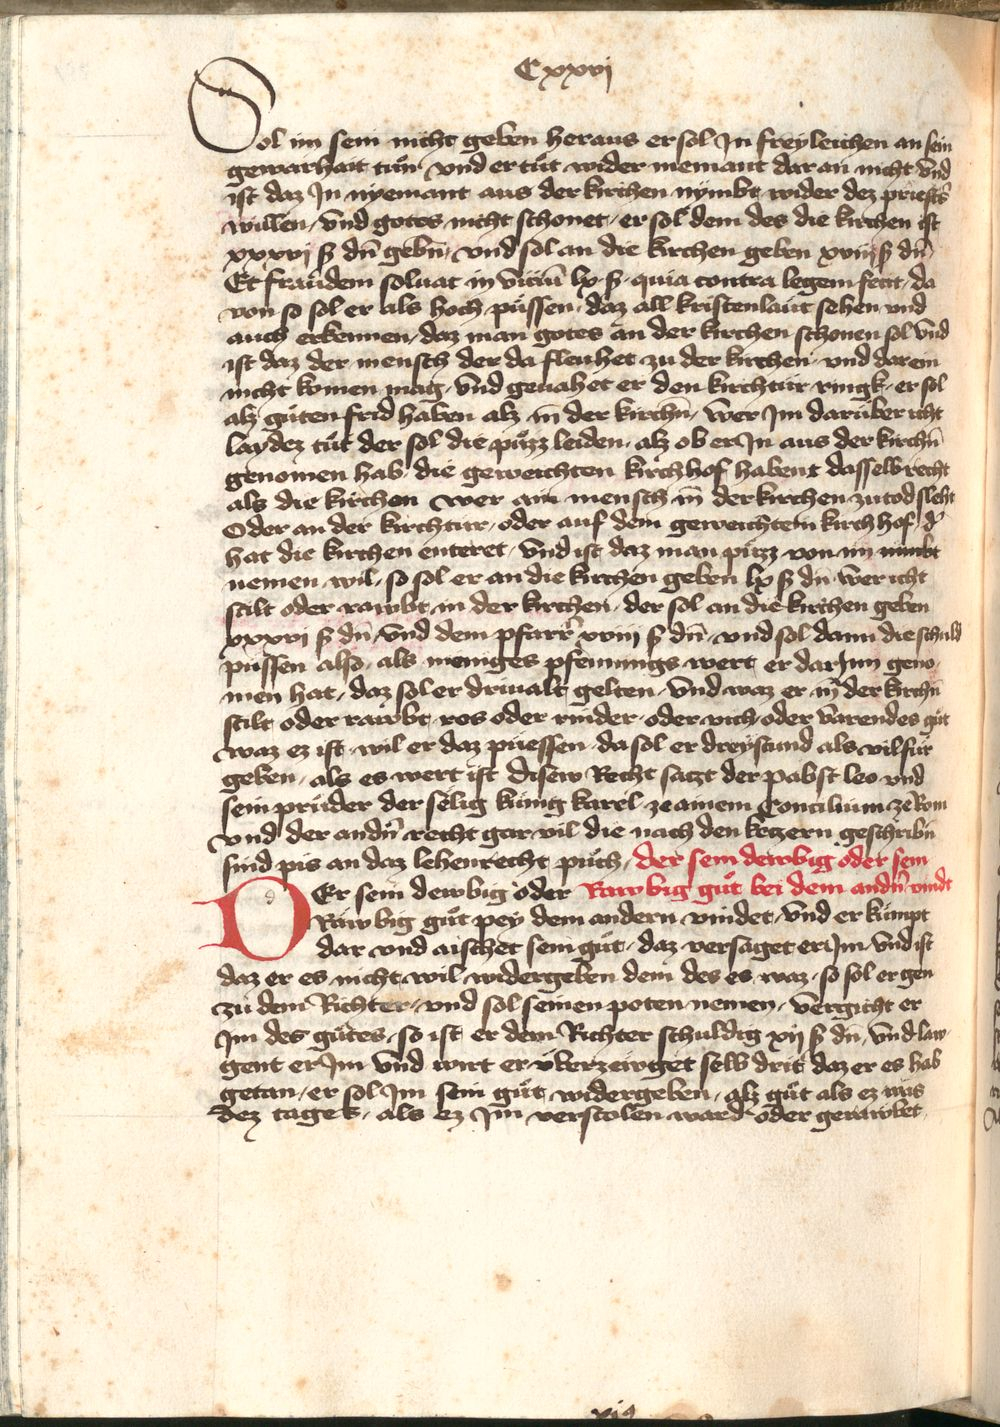 Cxxvj
Sol im sein nicht geben heraus er sol Jn freyleichen an sein
gewarhait tůn vnd er tůt wider niemant dar an nicht vnd
ist daz Jn nyemant aus der kirchen nymbt wider dez priesters
willen vnd gotes nicht schonet er sol dem des die kirchen ist
xxxvj ß dn̄ gebn̄ vnd sol an die kirchen geben xviij ß dn̄
Et fraudem soluat in lx ß quia contra legem fecit da
von so sol er als hoch püssen daz all kristenlaut sehen vnd
auch erkennen daz man gotes an der kirchen schonen sol vnd
ist daz der mensch der da fleuhet zu der kirchen vnd darein
nicht komen mag vnd genahet er den kirchtür ringk er sol
alz gůten frid haben alz in̄ der kirchn̄ wer Jm darüber icht
laydez tůt der sol die půzz leiden alz ob er Jn aus der kirchn̄
genomen hab die geweichten kirchhof habent dasselb recht
als die kirchen wer ain mensch in̄ der kirchen zu tod slecht
Oder an der kirchtür oder auf dem geweichtem kirchhof d̓
hat die kirchen enteret vnd ist daz man půzz von im nimbt
nemen wil so sol er an die kirchen geben lx ß dn̄ wer icht
stilt oder rawbt in der kirchen der sol an die kirchen geben
xxxvj ß dn̄ vnd dem pfarr̓ xviij ß dn̄ vnd sol dann die schuld
püssen also als meniges pfennings wert er darJnn geno
men hat daz sol er drivalt gelten vnd waz er in̄ der kirchn̄
stilt oder rawbt ros oder rinder oder vich oder varendes gůt
waz ez ist wil er daz püessen da sol er dreystund als vil für
geben als es wert ist disew Recht satzt der pabst leo vnd
sein průder der sëlig künig karel ze ainem Concilium ze Rom
vnd der andn̓ recht gar vil die nach den ketzern geschribn̄
sind pis an daz lehenrecht půch der sein dewbig oder sein
DEr sein dewbig oder Rawbig gůt bei dem andn̓ vindt
Rawbig gůt pey dem andern vindet vnd er kümpt
dar vnd aischet sein gůt daz versaget er Jm vnd ist
daz er es nicht wil widergeben dem des es waz so sol er gen
zu dem Richter vnd sol seinen poten nemen vergicht er
Jm des gůtes so ist er dem Richter schuldig xij ß dn̄ vnd law
gent er Jm vnd wirt er überzewget selb drit daz er es hab
getan er sol Jm sein gůt widergeben alz gůt als ez was
dez tages als ez Jm verstolen ward oder gerawbet